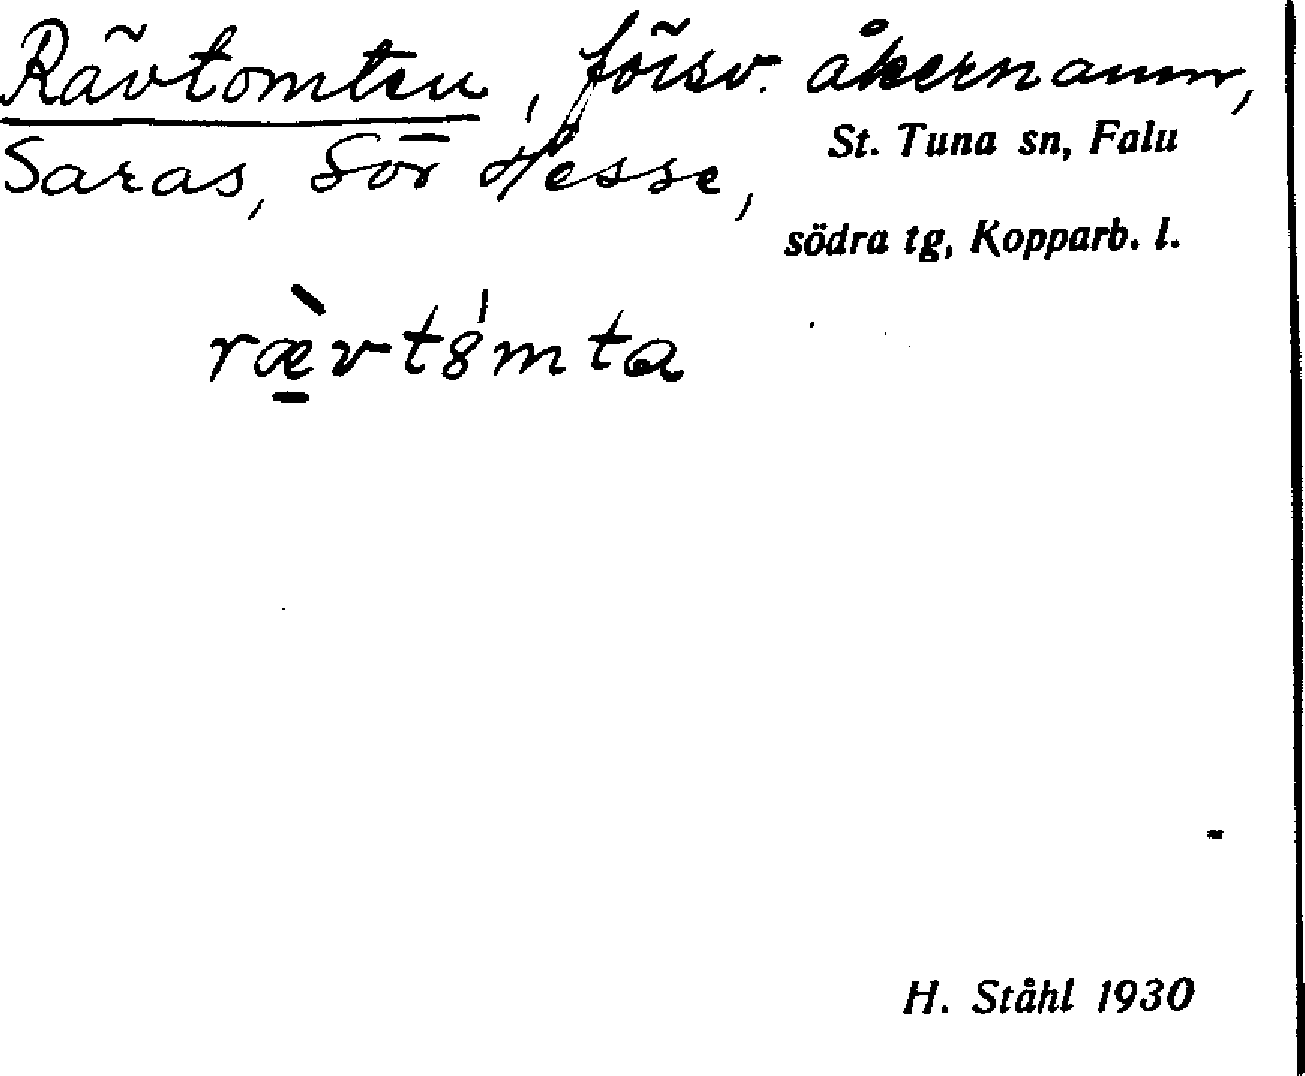 Rävtomten, försv. åkernamn,
St. Tuna sn, Falu
Saras, Sör Hesse,
södra tg, Kopparb. l.
ræ̀vt8́mta
H. Ståhl 1930